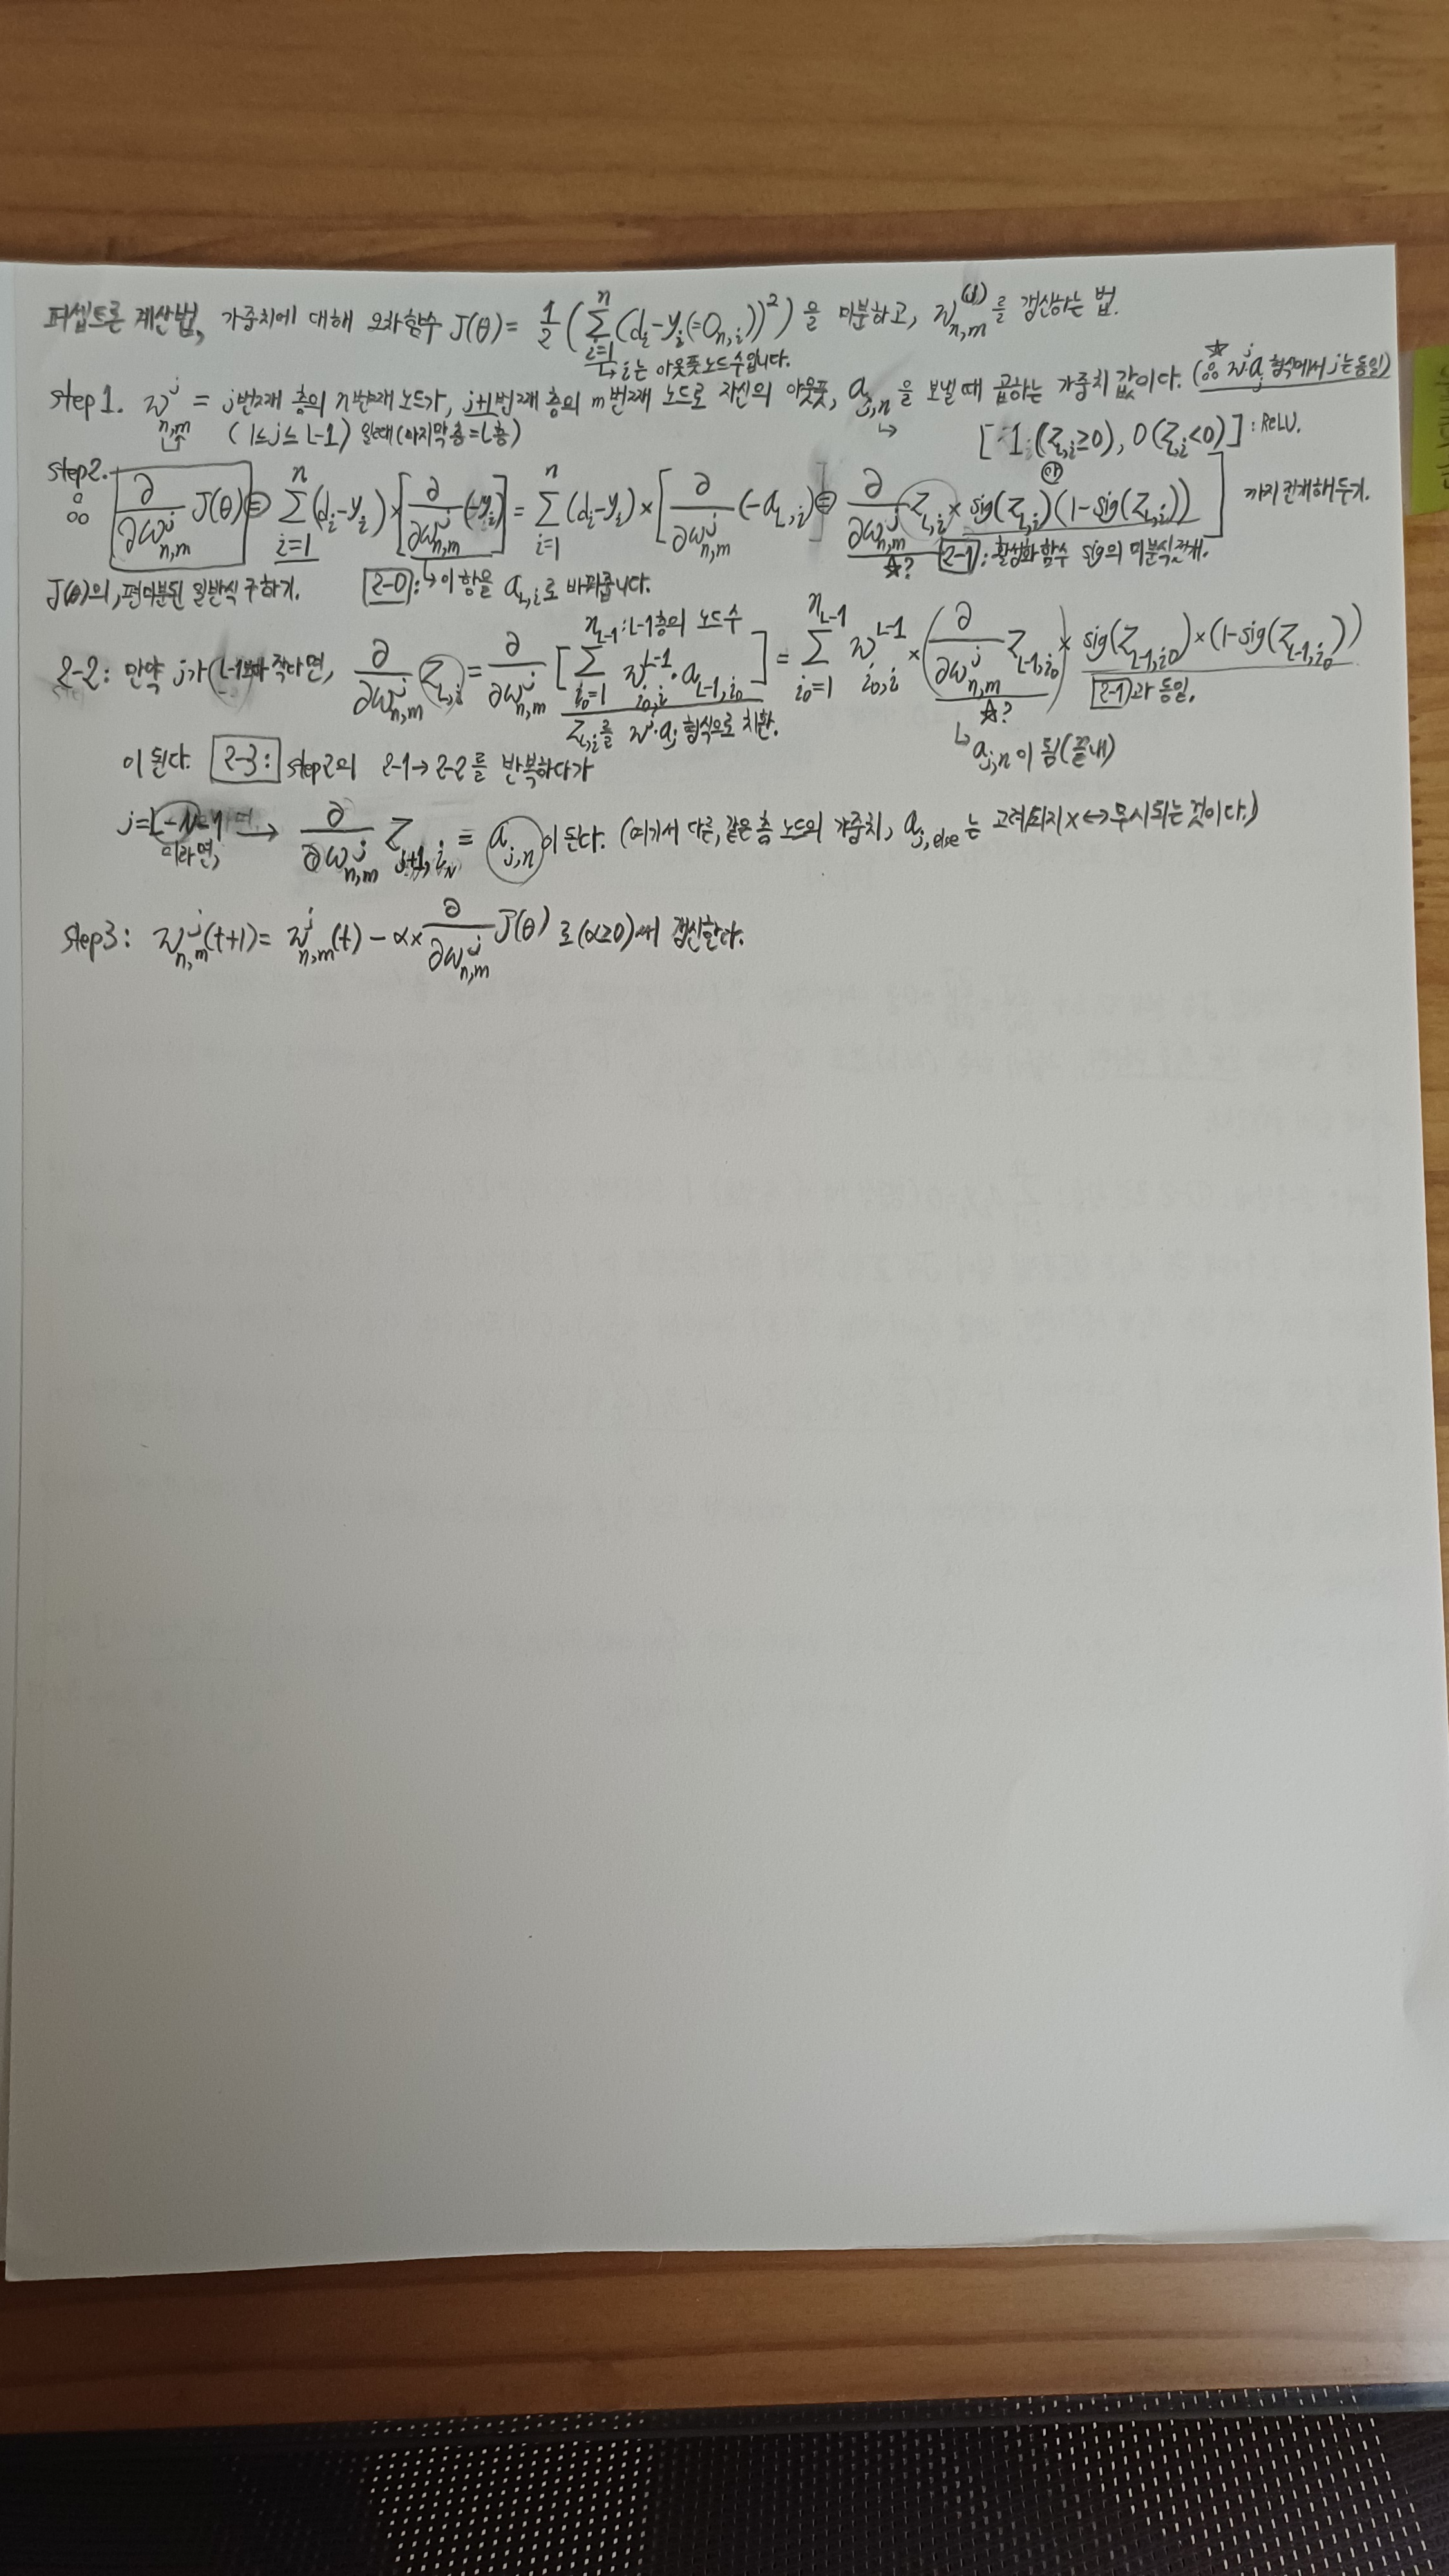 퍼셉트론 계산법, 가중치에 대해 오차함수 J(θ) = 1/2 (∑_{i=1}^{n} (d_i - y_i(=O_{n,i}))^2) 을 미분하고, w_{n,m}^{(j)} 를 갱신하는 법.
↳ i는 아웃풋 노드수입니다.
step1. w_{n,m}^j = j번째 층의 n번째 노드가, j+1번째 층의 m번째 노드로 자신의 아웃풋, a_{j,n}을 보낼 때 곱하는 가중치 값이다. (☆ ∴ w^j a_j 형식에서 j는 동일)
(1≤j≤L-1) 일때 (마지막 층=L층)
[1:(Z_{L,i}≥0), 0(Z_{L,i}<0)] : ReLU.
step2. ∴ ∂/∂w_{n,m}^j J(θ) ≡ ∑_{i=1}^{n} (d_i - y_i) × [∂/∂w_{n,m}^j (-y_i)] = ∑_{i=1}^{n} (d_i - y_i) × [∂/∂w_{n,m}^j (-a_{L,i}) ≡ ∂/∂w_{n,m}^j Z_{L,i} × sig(Z_{L,i})(1-sig(Z_{L,i}))] 까지 전개해두기.
☆? 2-1: 활성화 함수 sig의 미분식 전개.
J(θ)의, 편미분된 일반식 구하기. 2-0: ↳ 이 항을 a_{L,i}로 바꿔줍니다.
n_{L-1}: L-1층의 노드수
2-2: 만약 j가 (L-1)보다 작다면, ∂/∂w_{n,m}^j Z_{L,i} = ∂/∂w_{n,m}^j [∑_{i_0=1} w_{i_0,i}^{L-1} · a_{L-1,i_0}] = ∑_{i_0=1}^{n_{L-1}} w_{i_0,i}^{L-1} × (∂/∂w_{n,m}^j Z_{L-1,i_0} × sig(Z_{L-1,i_0}) × (1-sig(Z_{L-1,i_0})))
Z_{L,i}를 w^j·a_j 형식으로 치환. ☆? 2-1과 동일.
↳ a_{j,n}이 됨(끝내)
이 된다. 2-3: step2의 2-1→2-2를 반복하다가
j=L-N-1 이라면, → ∂/∂w_{n,m}^j Z_{j+1,i_N} ≡ a_{j,n} 이 된다. (여기서 다른, 같은 층 노드의 가중치, a_{j,else}는 고려되지 x ↔ 무시되는 것이다.)
step3: w_{n,m}^j(t+1) = w_{n,m}^j(t) - α × ∂/∂w_{n,m}^j J(θ) 로 (α≥0)써 갱신한다.